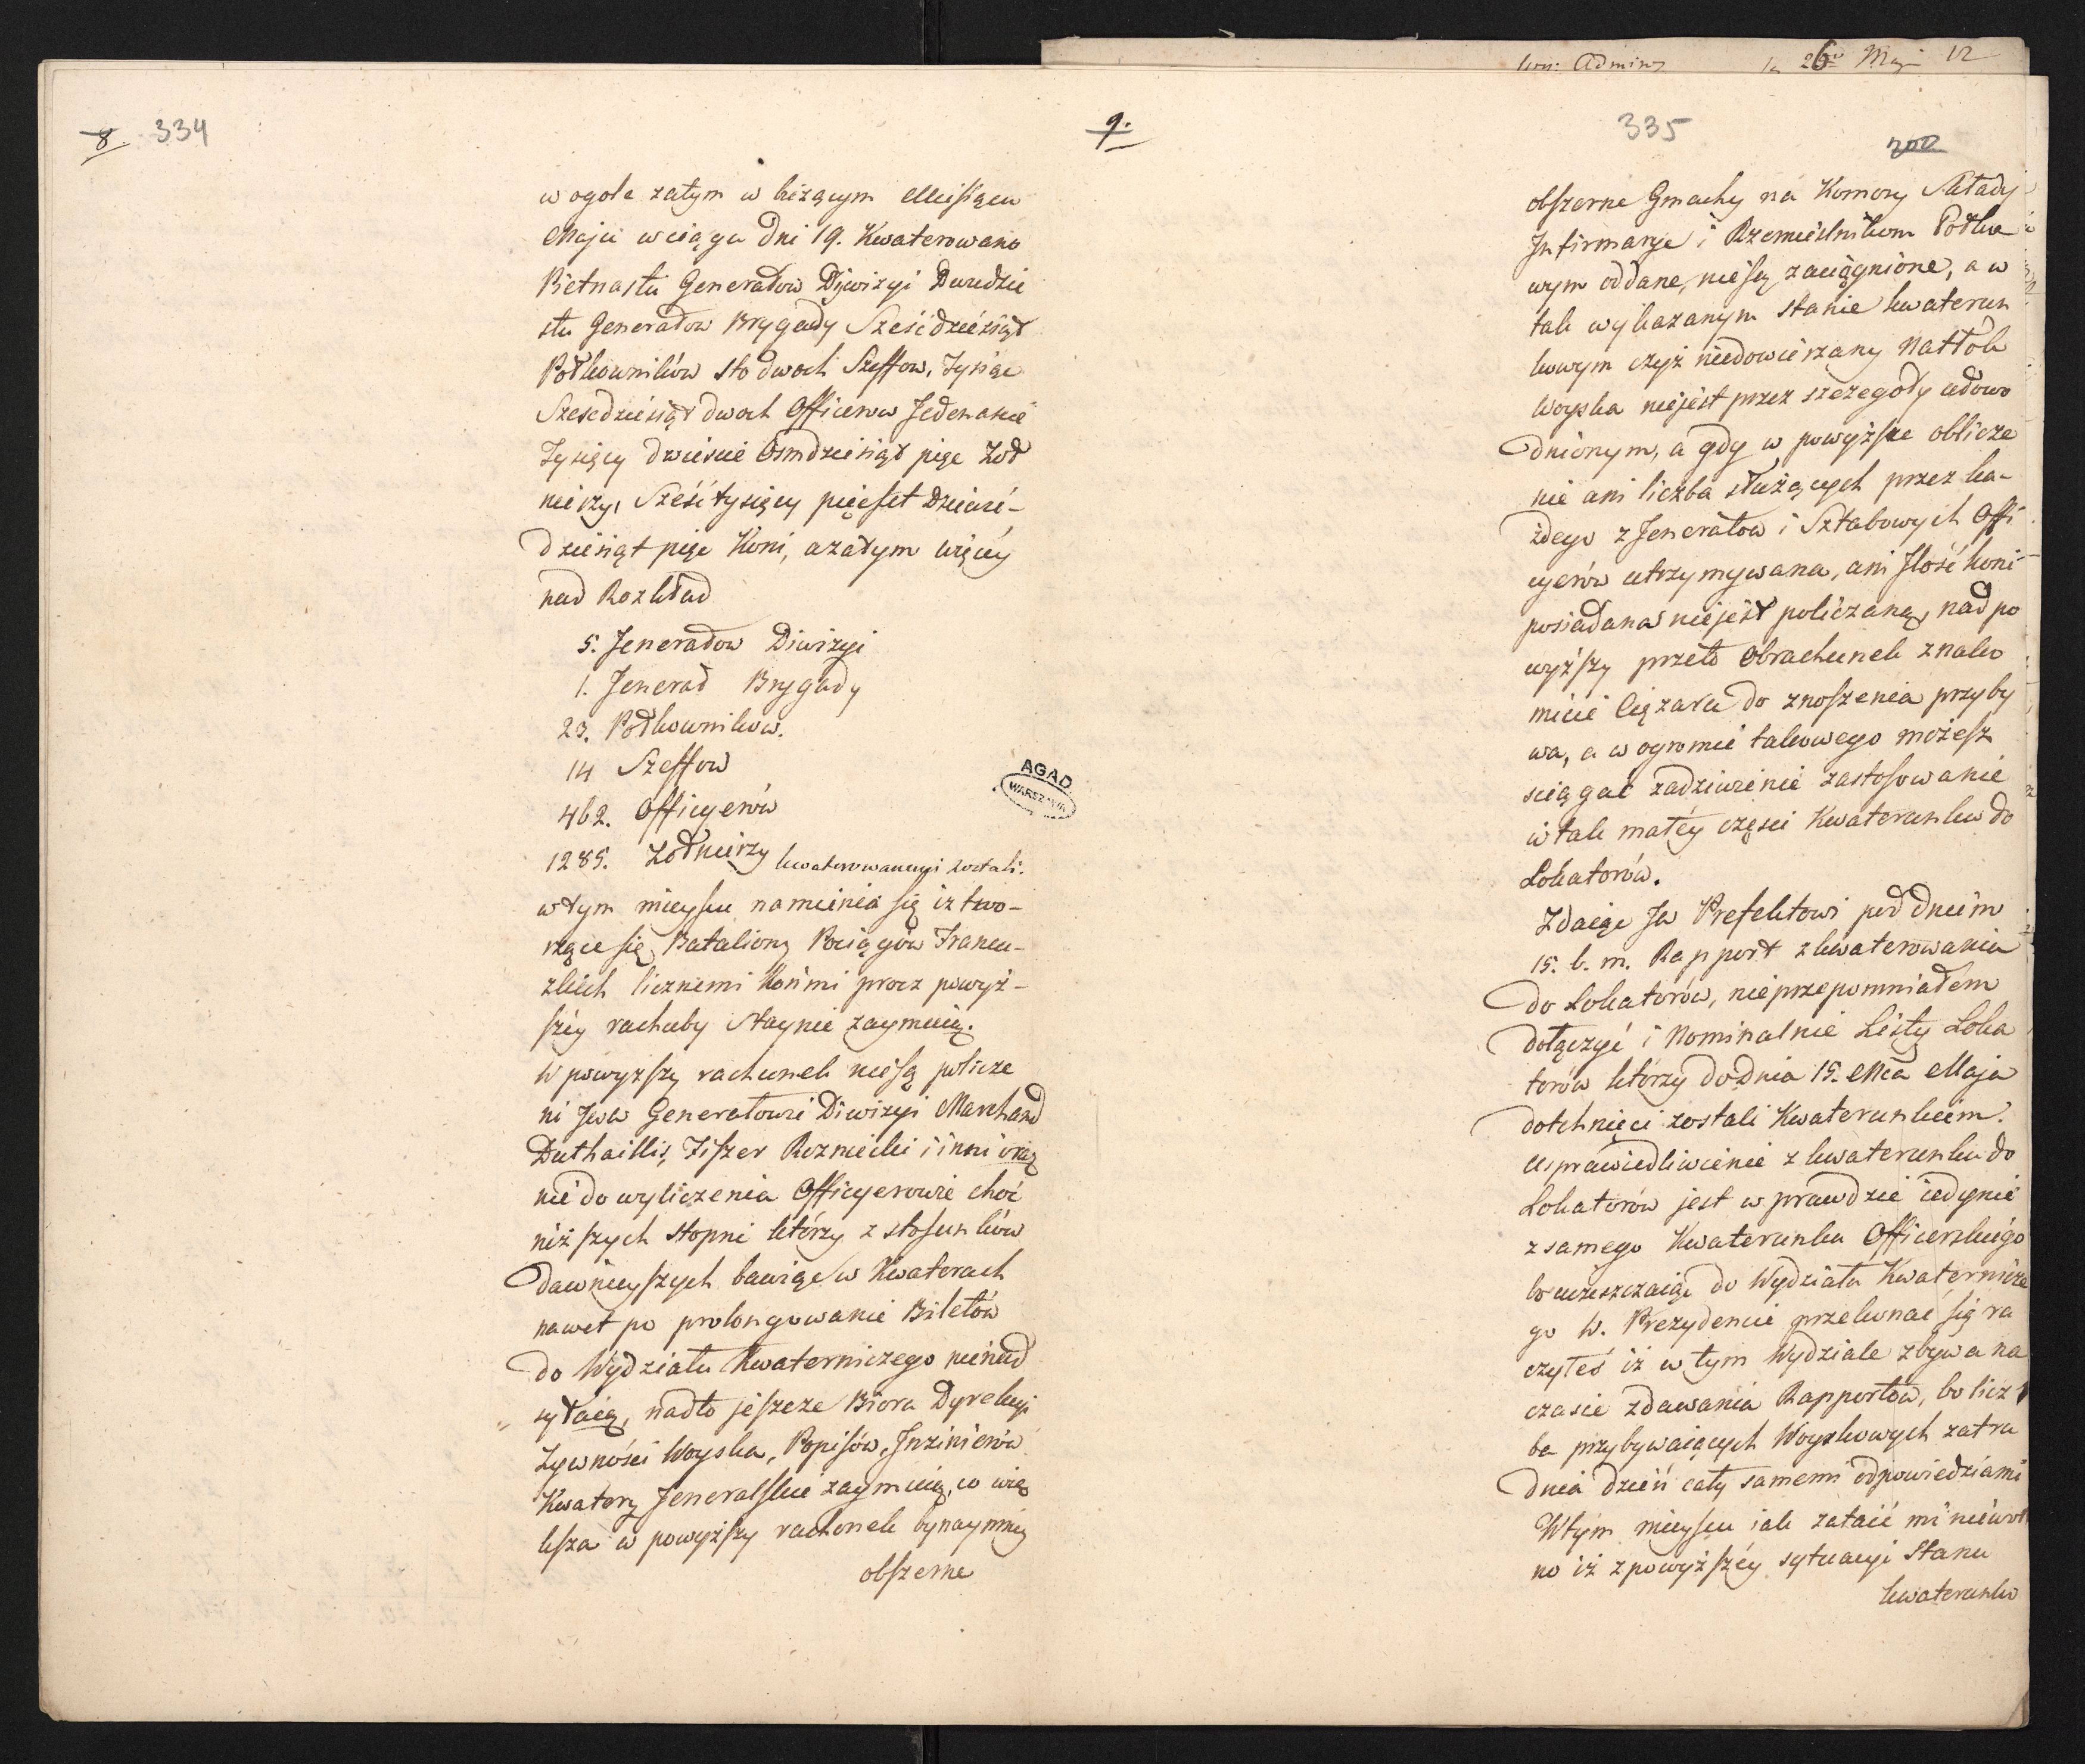 8. 334
w ogole zatym w bieżącym Miesiącu
Maju w ciągu dni 19. Kwaterowano
Pietnastu Generałow Dywizyi Dwudzie
stu Generałow Brygady Sześćdziesiąt
Połkownikow sto dwoch Szeffow, Tysiąc
Szescdziesiąt dwoch Officerow Jedenascie
Tysięcy dwiescie Osmdziesiąt pięc Żoł
nierzy, Sześć tysięcy pięcset Dziewię-
dziesiąt pięc Koni, a zatym więcey
nad Rozkład
5. Jenerałow Diwizyi
1. Jenerał Brygady
23. Połkownikow.
14 Szeffow
462. Officyerów
1285. Żołnierzy kwaterowanemi zostali.
w tym mieyscu namienia się iz two-
rzące się Bataliony Pociągów Francu-
zkich licznemi Końmi procz powyż-
széy rachuby Staynie zaymuią.
W powyzszy rachunek nie są policze
ni JWW Generałowie Diwizyi Marchand
Duthaillis, Fiszer Rozniecki i inni oraz
nie do wyliczenia Officyerowie choć
niższych stopni którzy z stosunków
dawnieyszych bawiąc w Kwaterach
nawet po prolongowanie Biletów
do Wydziału Kwaterniczego nienad
syłaią, nadto jeszcze Biora Dyrekcyi
Żywności Woyska, Popisów, Inzinierów
Kwatery Jeneralskie zaymuią, co więk
ksza w powyższy rachonek bynaymniey
obszerne
AGAD
WARSZAWA
9.
kon: Admin
26 May 12
335
200
obszerne Gmachy na Komory Składy
Infirmarye i Rzemieślnikom Połko
wym oddane, nie są zaciągnione, a w
tak wykazanym stanie kwaterun
kowym czyż niedowierzany Natłók
Woyska niejest przez szczegoły udowo
dnionym, a gdy w powyższe oblicze
nie ani liczba służących przez ka-
żdego z Jenerałow i Sztabowych Offi
cyerów utrzymywana, ani Ilość koni
posiadana niejest policzaną, nad po
wyższy przeto Obrachunek znako
micie Ciężaru do znoszenia przyby
wa, a w ogromie takowego możesz
ściągać zadziwienie zastosowanie
w tak małéy części Kwaterunku do
Lokatorów.
Zdaiąc JW Prefektowi pod dniem
15. b. m. Rapport z kwaterowania
do Lokatorów, nieprzepomniałem
dołączyć i Nominalnie Listy Loka
torów którzy do Dnia 15. Mca Maja
dotchnięci zostali Kwaterunkiem.
Usprawiedliwienie z kwaterunku do
Lokatorów jest w prawdzie iedynie
z samego Kwaterunku Officerskiego
bo uczeszczaiąc do Wydziału Kwaternicze
go W. Prezydencie przekonać się ra
czyłeś iż w tym Wydziale zbywa na
czasie zdawania Rapportów, bo licz
ba przybywaiących Woyskowych zatru
dnia dzień cały samemi odpowiedziami
W tym mieyscu iak zataić mi niewol
no iż z powyższéy sytuacyi Stanu
kwaterunko